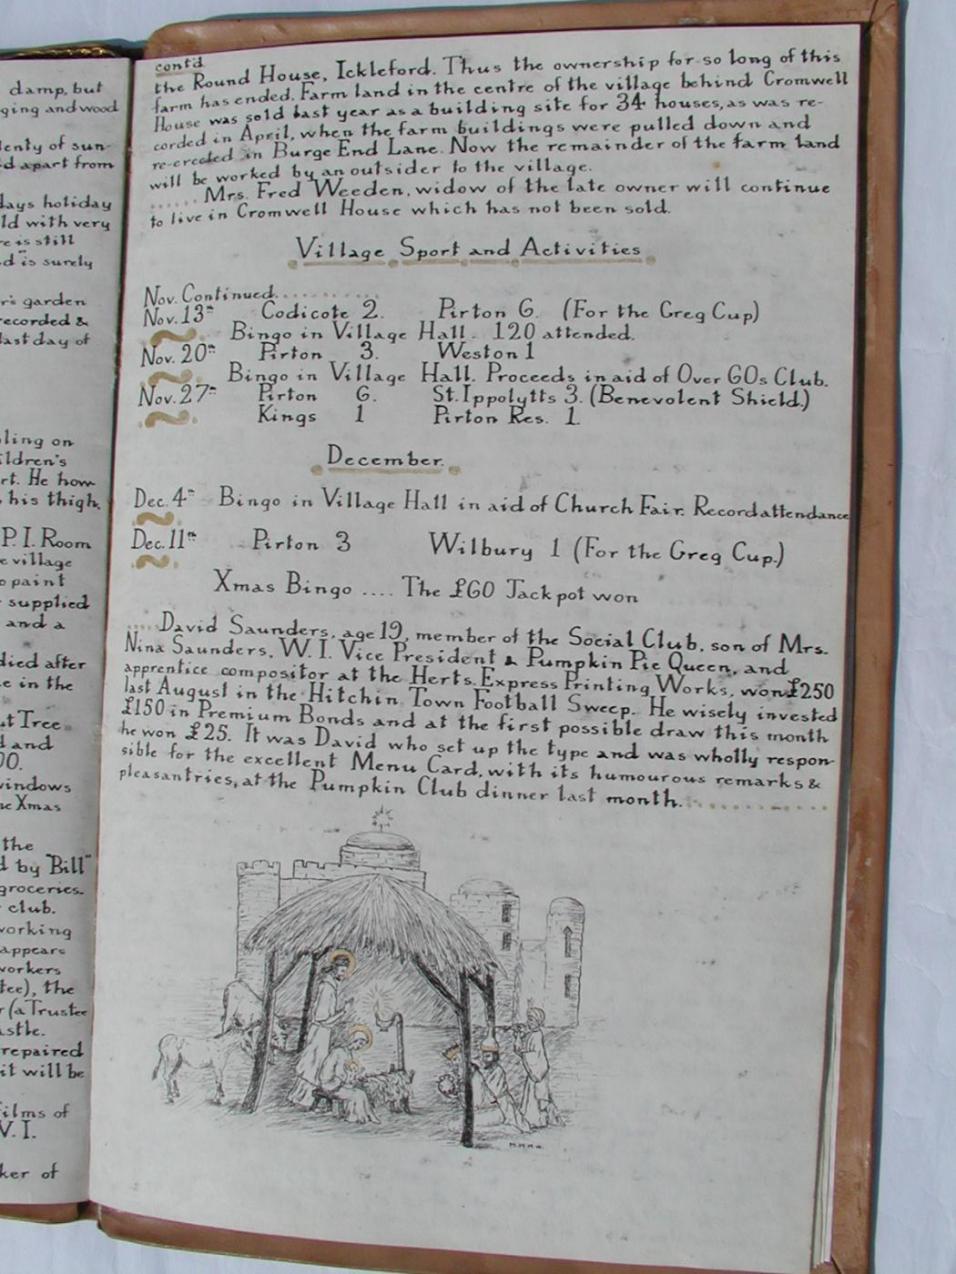 damp, but
ging and wood
lenty of sun-
d apart from
days holiday
ld with very
re is still
d is surely
r's garden
recorded &
last day of
ling on
ildren's
rt. He how-
his thigh.
P.I. Room
e village
o paint
supplied
and a
died after
e in the
ut Tree
d and
00.
windows
he Xmas
the
d by "Bill"
groceries.
club.
working
appears
workers
tee), the
r (a Trustee
astle.
repaired
it will be
films of
W.I.
ker of
contd
the Round House, Ickleford. Thus the ownership for so long of this
farm has ended. Farm land in the centre of the village behind Cromwell
House was sold last year as a building site for 34 houses, as was re-
corded in April, when the farm buildings were pulled down and
re-erected in Burge End Lane. Now the remainder of the farm land
will be worked by an outsider to the village.
...... Mrs. Fred Weeden, widow of the late owner will continue
to live in Cromwell House which has not been sold.
Village Sport and Activities
Nov. Continued..........
Nov. 13th Codicote 2. Pirton 6. (For the Greg Cup)
Bingo in Village Hall. 120 attended.
Nov. 20th Pirton 3. Weston 1
Bingo in Village Hall. Proceeds in aid of Over 60s Club.
Nov. 27th Pirton 6. St. Ippolytts 3. (Benevolent Shield.)
Kings 1 Pirton Res. 1.
December.
Dec. 4th Bingo in Village Hall in aid of Church Fair. Record attendance
Dec. 11th Pirton 3 Wilbury 1 (For the Greg Cup.)
Xmas Bingo .... The £60 Jackpot won
.... David Saunders, age 19, member of the Social Club, son of Mrs.
Nina Saunders, W.I. Vice President & Pumpkin Pie Queen, and
apprentice compositor at the Herts. Express Printing Works, won £250
last August in the Hitchin Town Football Sweep. He wisely invested
£150 in Premium Bonds and at the first possible draw this month
he won £25. It was David who set up the type and was wholly respon-
sible for the excellent Menu Card, with its humourous remarks &
pleasantries, at the Pumpkin Club dinner last month...........